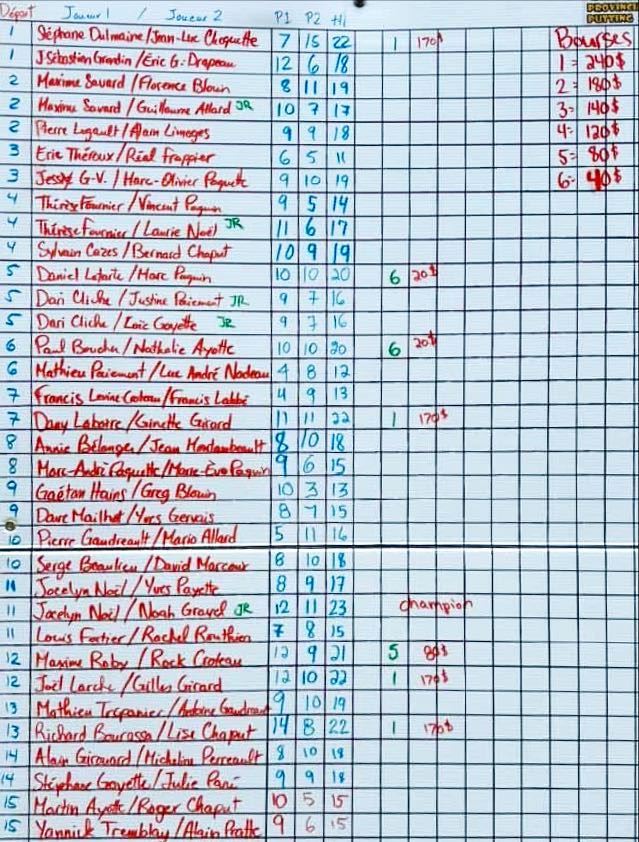 Départ Joueur 1 / Joueur 2 P1 P2 PROVINCE PUTTING
1 Stéphane Dulmaine/Jean-Luc Choquette 7 15 22 1 170$ Bourses
1 J Sébastien Grandin/Éric G. Drapeau 12 6 18 1 = 240$
2 Maxime Savard/Florence Blouin 8 11 19 2 = 180$
2 Maxime Savard/Guillaume Allard JR 10 7 17 3= 140$
2 Pierre Legault/Alain Limoges 9 9 18 4= 120$
3 Eric Théroux/Réal Frappier 6 5 11 5= 80$
3 Jessy G-V./Marc-Olivier Paquette 9 10 19 6= 40$
4 Thérèse Fournier/Vincent Paquin 9 5 14
4 Thérèse Fournier/Laurie Noël JR 11 6 17
4 Sylvain Cazes/Bernard Chaput 10 9 19
5 Daniel Latarte/Marc Paquin 10 10 20 6 20$
5 Dari Cliche/Justine Paiement JR 9 7 16
5 Dari Cliche/Loïc Goyette JR 9 7 16
6 Paul Boucher/Nathalie Ayotte 10 10 20 6 20$
6 Mathieu Paiement/Luc André Nadeau 4 8 12
7 Francis /Francis Labbé 4 9 13
7 Dany Labarre/Ginette Girard 11 11 22 1 170$
8 Annie Bélanger/Jean Montambeault 8 10 18
8 Marc-André Paquette/Marie-Eve Paquin 9 6 15
9 Gaétan Hains/Greg Blouin 10 3 13
9 Dave Mailhot/Yves Gervais 8 7 15
10 Pierre Gaudreault/Mario Allard 5 11 16
10 Serge Beaulieu/David Marcoux 8 10 18
11 Jocelyn Noël/Yves Payette 8 9 17
11 Jocelyn Noël/Noah Gravel JR 12 11 23 champion
11 Louis Fortier/Rachel Routhier 7 8 15
12 Maxime Roby/Rock Croteau 12 9 21 5 80$
12 Joël Larche/Gilles Girard 12 10 22 1 170$
13 Mathieu Trépanier/Antoine Gaudreault 9 10 19
13 Richard Bourassa/Lise Chaput 14 8 22 1 170$
14 Alain Girouard/Micheline Perreault 8 10 18
14 Stéphane Goyette/Julie Paré 9 9 18
15 Martin Ayotte/Roger Chaput 10 5 15
15 Yannick Tremblay/Alain Pratte 9 6 15